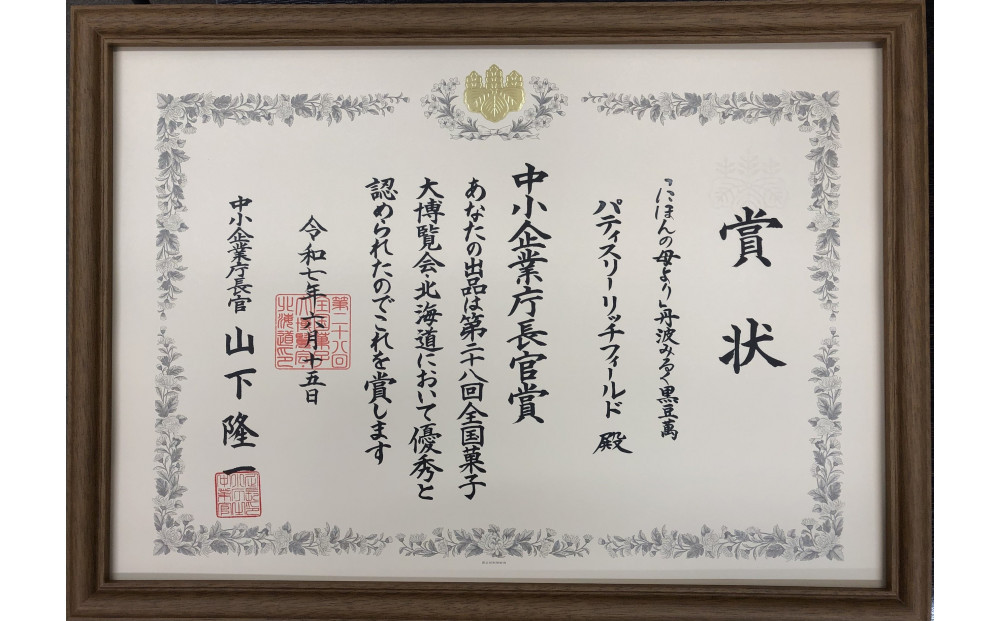 賞状
『にほんの母より』丹波みるく黒豆萬
パティスリーリッチフィールド 殿
中小企業庁長官賞
あなたの出品は第二十八回全国菓子
大博覧会・北海道において優秀と
認められたのでこれを賞します
令和七年六月十五日
第二十八回
全国菓子
大博覧会
北海道印
中小企業庁長官 山下隆一